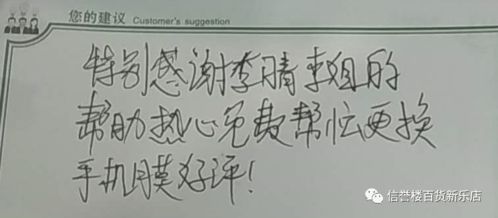 您的建议 Customer's suggestion
特别感谢李晴李姐的
帮助热心免费帮忙更换
手机膜好评!
信誉楼百货新乐店